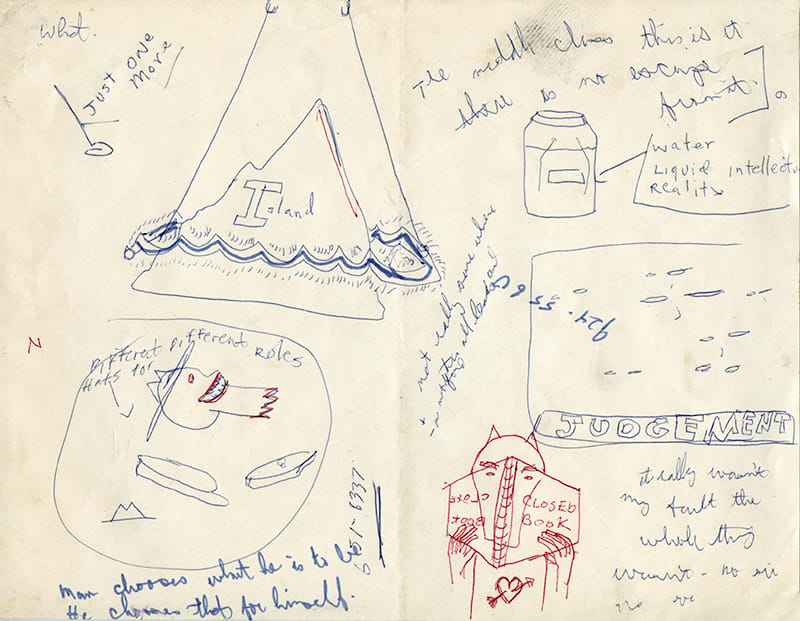 what.
JUST ONE
MORE
Island
N
Different Different Roles
Hats for
Man chooses what he is to be
He chooses that for himself.
651-6337
The middle class this is it
there is no escape
from it.
water
Liquid intellectu
Reality
not really some where
all
924-55
JUDGEMENT
CLOSED
BOOK
it really wasn't
my fault the
whole thing
wasn't - no sir
no